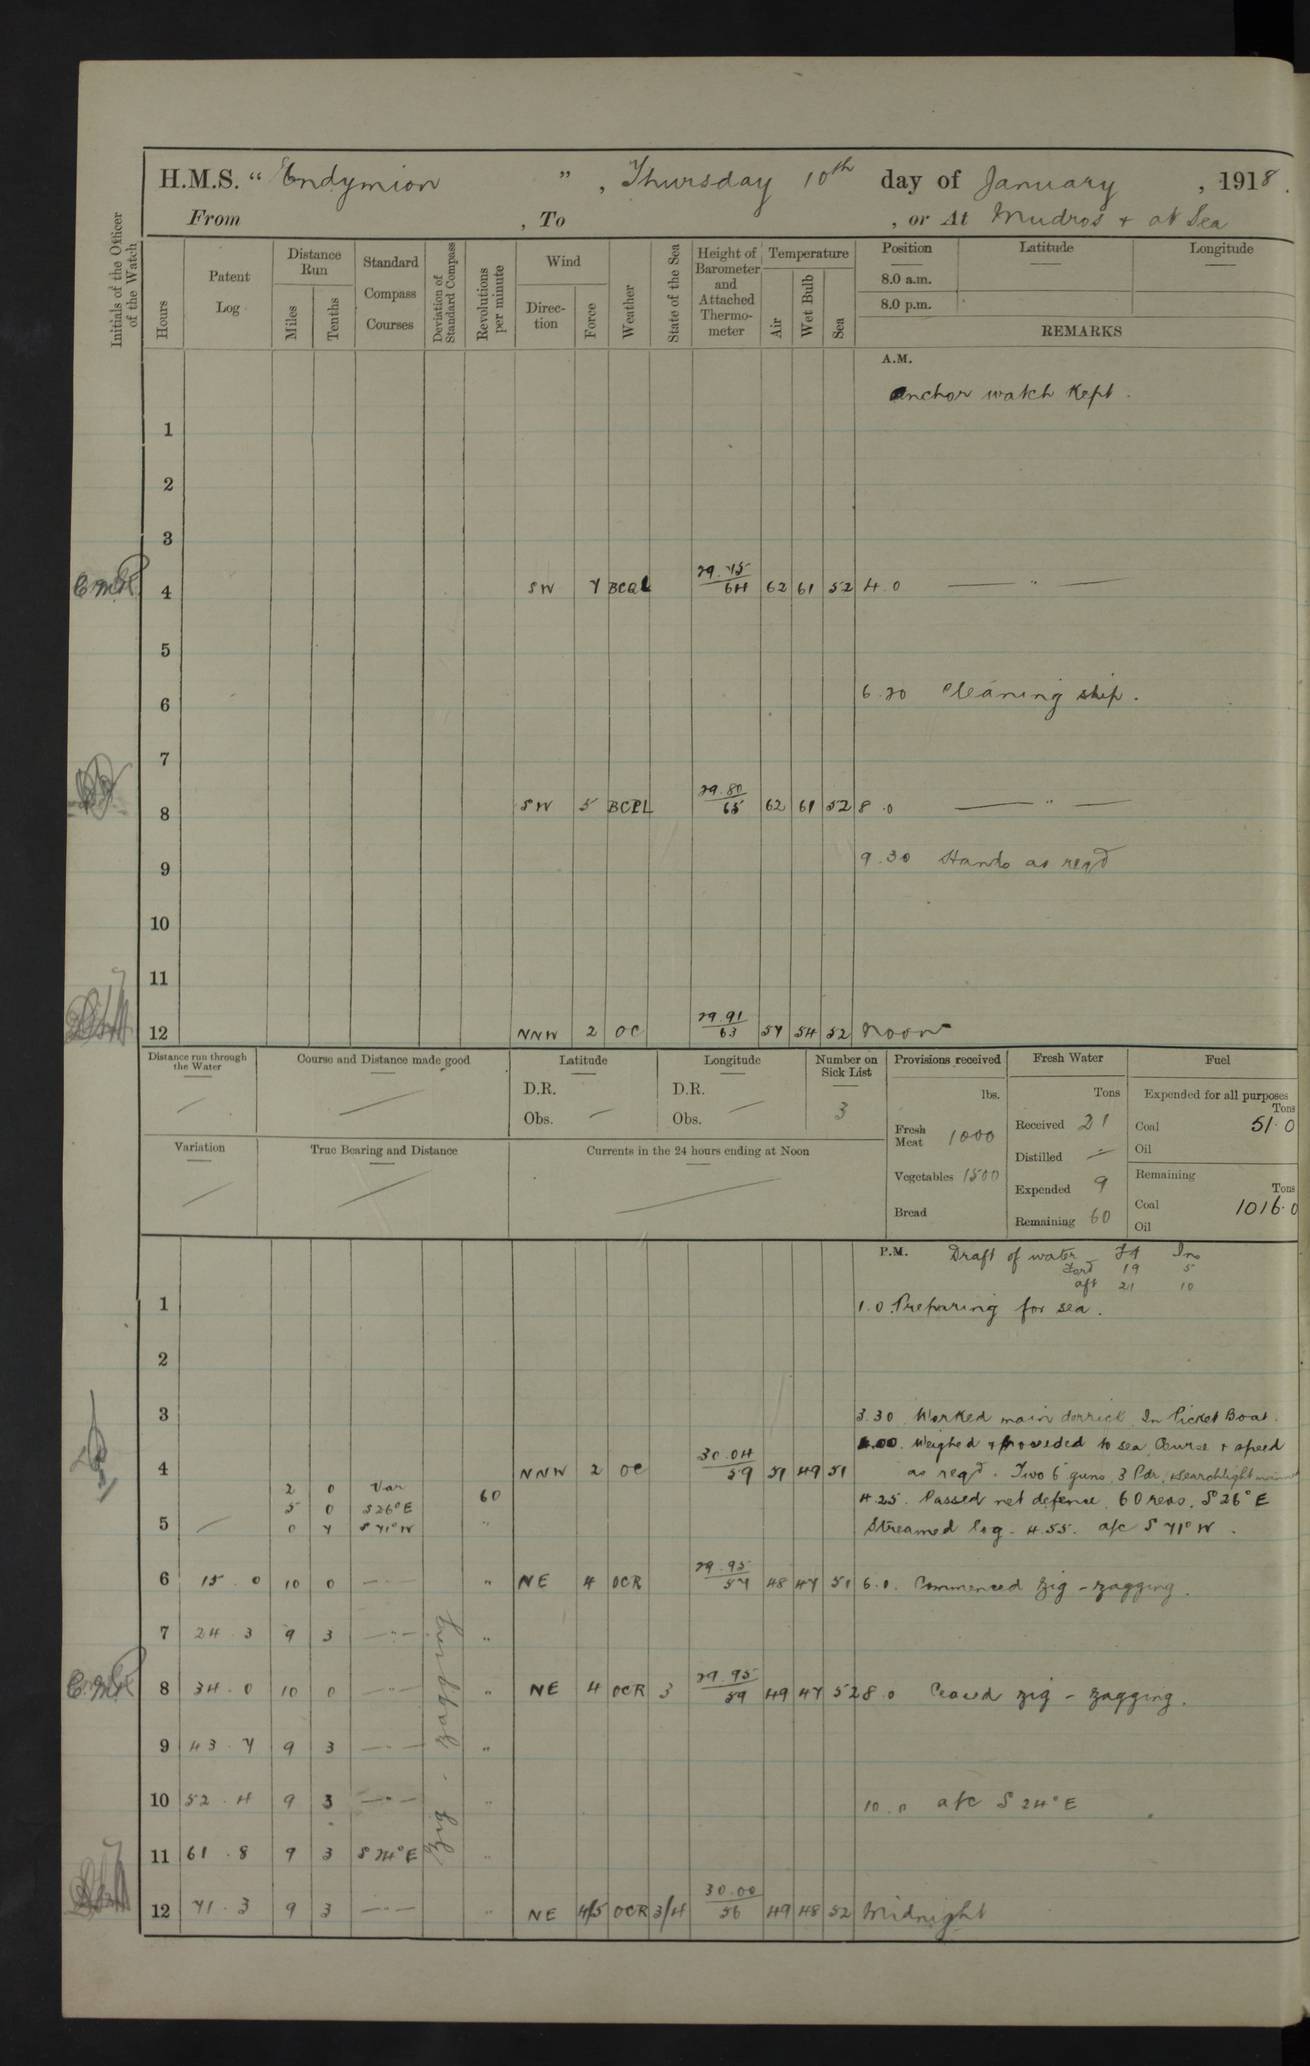 H.M.S. “ Endymion ”, Thursday 10th day of January, 1918.
From , To , or At Mudros & at Sea
Initials of the Officer of the Watch
Hours
Patent Log
Distance Run
Miles
Tenths
Standard Compass Courses
Deviation of Standard Compass
Revolutions per minute
Wind
Direction
Force
Weather
State of the Sea
Height of Barometer and Attached Thermometer
Temperature
Air
Wet Bulb
Sea
Position Latitude Longitude
8.0 a.m.
8.0 p.m.
REMARKS
A.M.
Anchor watch kept.
1
2
3
4 SW 7 BCQL 29.75/64 62 61 52 4.0 — " —
5
6 6.20 Cleaning ship.
7
8 SW 5 BCPL 29.80/65 62 61 52 8.0 — " —
9 9.30 Hands as reqd
10
11
12 NNW 2 OC 29.91/63 57 54 52 Noon
Distance run through the Water
Course and Distance made good
Latitude
D.R.
Obs. —
Longitude
D.R.
Obs. —
Number on Sick List
3
Provisions received
lbs.
Fresh Meat 1000
Vegetables 1500
Bread
Fresh Water
Tons
Received 21
Distilled —
Expended 9
Remaining 60
Fuel
Expended for all purposes
Tons
Coal 51.0
Oil
Remaining
Tons
Coal 1016.0
Oil
Variation
True Bearing and Distance
Currents in the 24 hours ending at Noon
P.M. Draft of water Ft Ins
Ford 19 5
aft 21 10
1 1.0 Preparing for sea.
2
3 3.30 Worked main derrick. In Picket Boat.
4.00. Weighed & proceeded to sea. Course & speed
4 NNW 2 OC 30.04/59 51 49 51 as reqd. Two 6" guns, 3 Pdr, searchlight
2 0 Var 60
5 0 S26°E " 4.25. Passed net defence, 60 revs. S 26° E
5 — 0 7 S 71° W " Streamed log. 4.55. a/c S 71° W.
6 15.0 10 0 — " — " NE 4 OCR 29.95/57 48 47 51 6.0. Commenced zig-zagging.
7 24.3 9 3 — " — "
8 34.0 10 0 — " — " NE 4 OCR 3 29.95/59 49 47 52 8.0 Ceased zig-zagging.
9 43.7 9 3 — " — "
10 52.4 9 3 — " — " 10.0 a/c S 24° E
11 61.8 9 3 S 24° E "
12 71.3 9 3 — " — " NE 4/5 OCR 3/4 30.00/56 49 48 52 Midnight
Zig-zagging